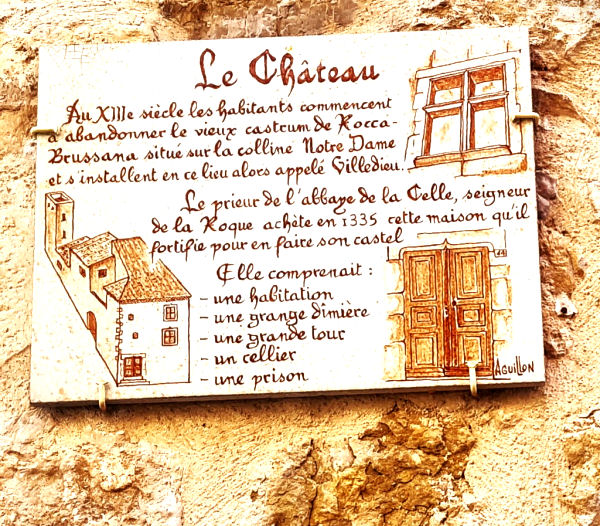 Le Château
Au XIIIe siècle les habitants commencent
à abandonner le vieux castrum de Rocca-
Brussana situé sur la colline Notre Dame
et s'installent en ce lieu alors appelé Villedieu.
Le prieur de l'abbaye de la Celle, seigneur
de la Roque achète en 1335 cette maison qu'il
fortifie pour en faire son castel
Elle comprenait :
- une habitation
- une grange dîmière
- une grande tour
- un cellier
- une prison
AGUILLON